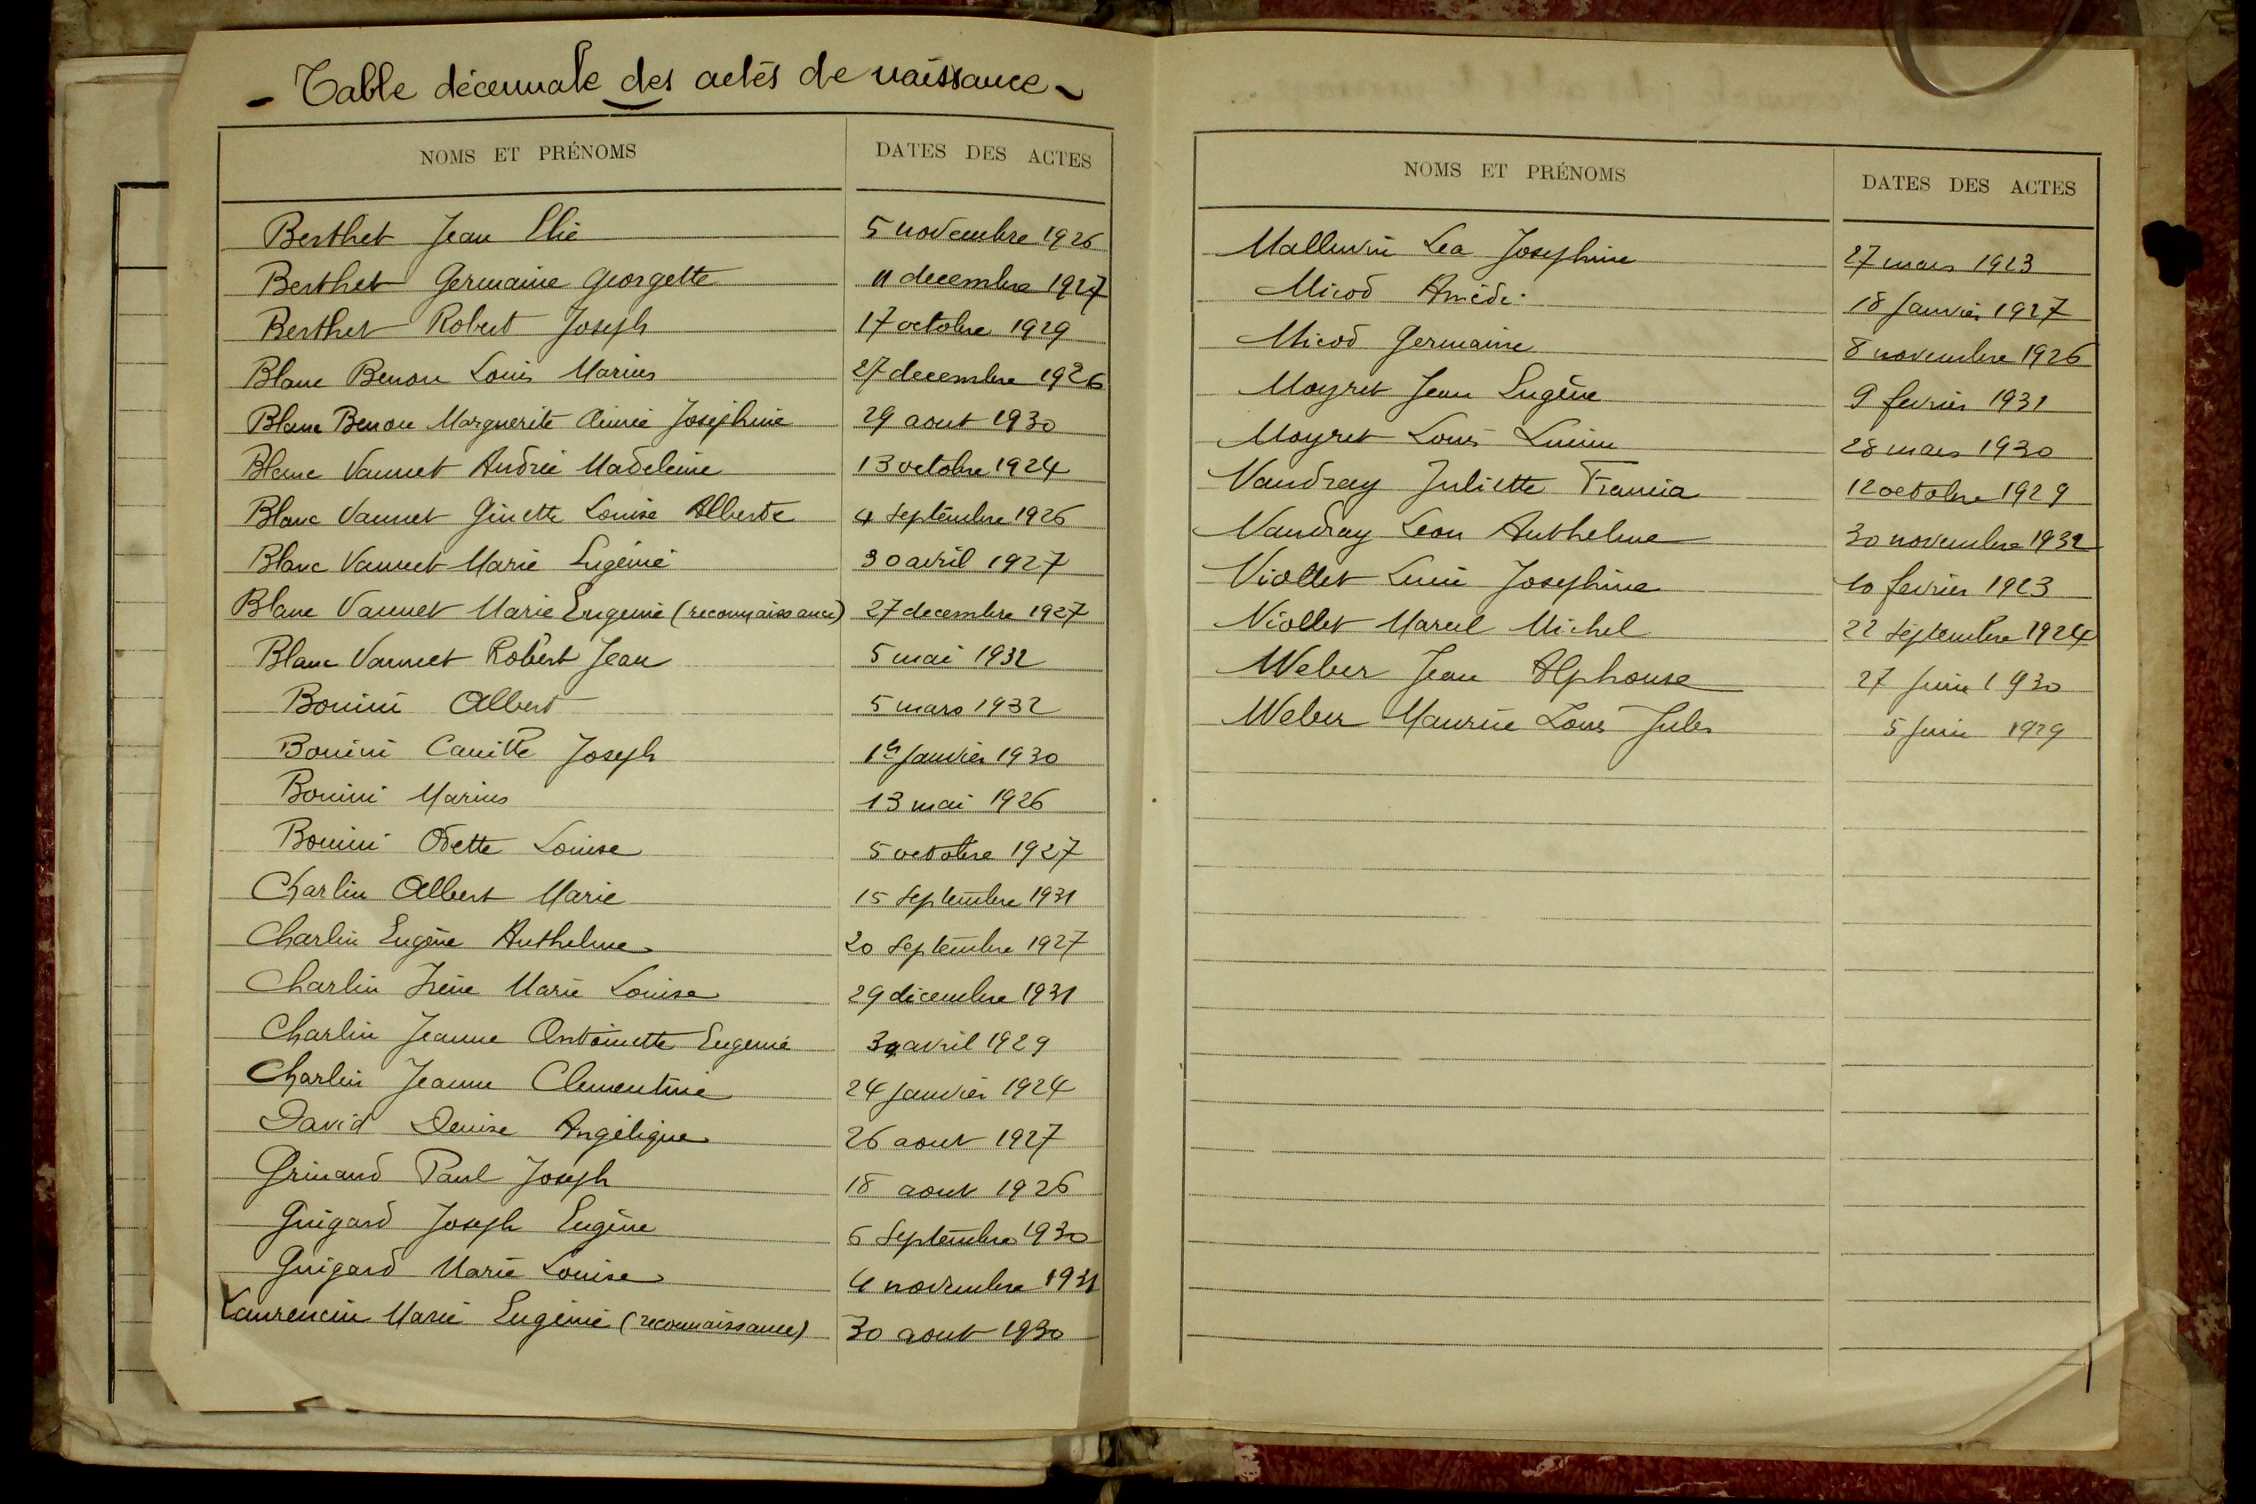 - Table décennale des actes de naissance -
NOMS ET PRÉNOMS DATES DES ACTES
Berthet Jean Elie 5 novembre 1926
Berthet Germaine Georgette 11 decembre 1927
Berthet Robert Joseph 17 octobre 1929
Blanc Benon Louis Marius 27 decembre 1926
Blanc Benon Marguerite Aimée Joséphine 29 aout 1930
Blanc Vannet Andrée Madeleine 13 octobre 1924
Blanc Vannet Ginette Louise Alberte 4 Septembre 1926
Blanc Vannet Marie Eugénie 30 avril 1927
Blanc Vannet Marie Eugenie (reconnaissance) 27 decembre 1927
Blanc Vannet Robert Jean 5 mai 1932
Bonini Albert 5 mars 1932
Bonini Camille Joseph 1er Janvier 1930
Bonini Marius 13 mai 1926
Bonini Odette Louise 5 octobre 1927
Charlin Albert Marie 15 Septembre 1931
Charlin Eugène Anthelme 20 Septembre 1927
Charlin Irène Marie Louise 29 décembre 1931
Charlin Jeanne Antoinette Eugenie avril 1929
Charlin Jeanne Clementine 24 Janvier 1924
David Denise Angélique 26 aout 1927
Grinand Paul Joseph 18 aout 1926
Guigard Joseph Eugène 6 Septembre 1930
Guigard Marie Louise 4 novembre 1931
Laurencin Marie Eugénie (reconnaissance) 30 aout 1930
NOMS ET PRÉNOMS DATES DES ACTES
Mallevin Lea Josephine 27 mars 1923
Micod Amédé 18 Janvier 1927
Micod Germaine 8 novembre 1926
Moyret Jean Eugène 9 fevrier 1931
Moyret Louis Lucien 28 mars 1930
Vaudray Juliette Francia 12 octobre 1929
Vaudray Leon Anthelme 30 novembre 1932
Viollet Lucie Josephine 10 fevrier 1923
Viollet Marcel Michel 22 Septembre 1924
Weber Jean Alphonse 27 Juin 1930
Weber Maurice Louis Jules 5 Juin 1929